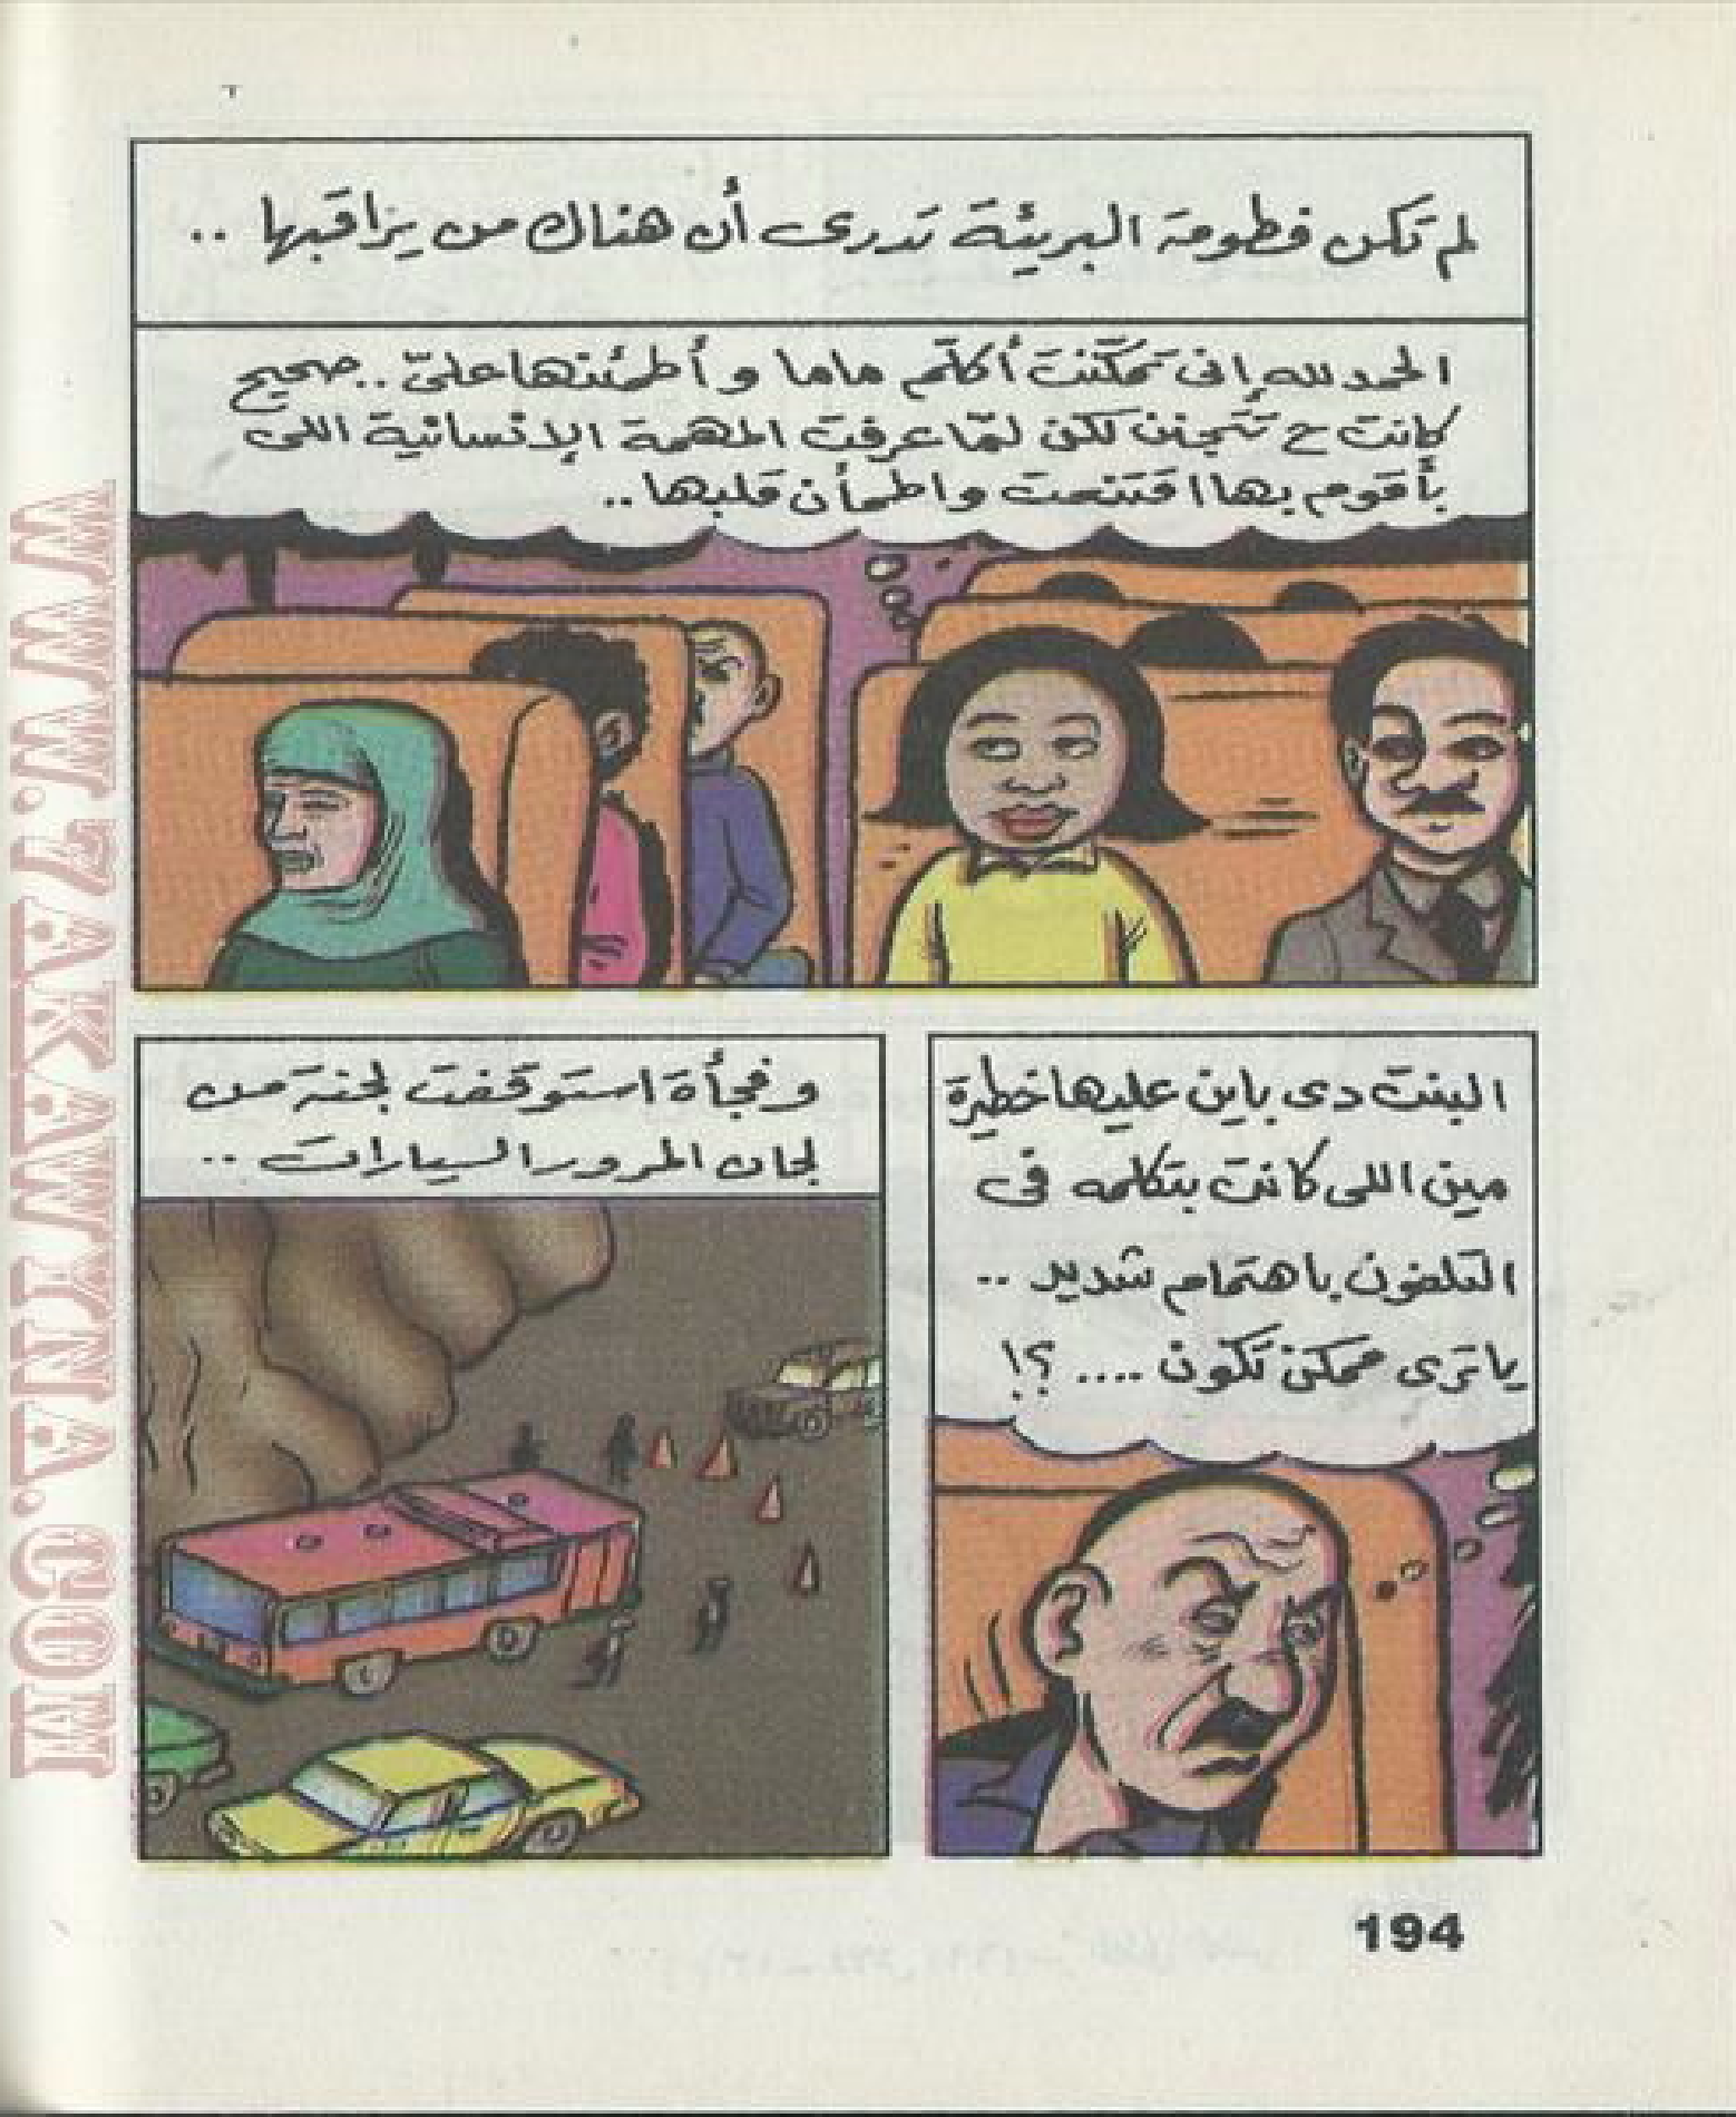 لم تكن فطومة البريئة تدرى أن هناك من يراقبها ..
الحمد لله إنى تمكّنت أكلّم ماما و أطمئنها علىّ .. صحيح
كانت ح تتجنن لكن لمّا عرفت المهمة الإنسانية اللى
بأقوم بها اقتنعت واطمأن قلبها ..
البنت دى باين عليها خطيرة
مين اللى كانت بتكلمه فى
التلفون باهتمام شديد ..
يا ترى ممكن تكون .... ؟!
و فجأة استوقفت لجنة من
لجان المرور السيارات ..
194
WWW.7AKAWINA.COM